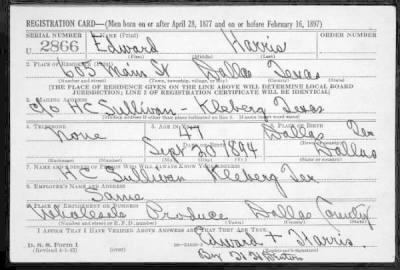 REGISTRATION CARD—(Men born on or after April 28, 1877 and on or before February 16, 1897)
SERIAL NUMBER 1. NAME (Print) ORDER NUMBER
U 2866 Edward Harris
(First) (Middle) (Last)
2. PLACE OF RESIDENCE (Print)
505 Main St Dallas Texas
(Number and street) (Town, township, village, or city) (County) (State)
[THE PLACE OF RESIDENCE GIVEN ON THE LINE ABOVE WILL DETERMINE LOCAL BOARD
JURISDICTION; LINE 2 OF REGISTRATION CERTIFICATE WILL BE IDENTICAL]
3. MAILING ADDRESS
c/o HC Sullivan - Kleberg Texas
[Mailing address if other than place indicated on line 2. If same insert word same]
4. TELEPHONE 5. AGE IN YEARS 6. PLACE OF BIRTH
None 47 Dallas Tex
DATE OF BIRTH
Sept 20 1894 Dallas
(Exchange) (Number) (Mo.) (Day) (Yr.) (State or country)
7. NAME AND ADDRESS OF PERSON WHO WILL ALWAYS KNOW YOUR ADDRESS
HC Sullivan Kleberg Tex
8. EMPLOYER'S NAME AND ADDRESS
Same
9. PLACE OF EMPLOYMENT OR BUSINESS
Wholesale Produce Dallas County
(Number and street or R. F. D. number) (Town) (County) (State)
I AFFIRM THAT I HAVE VERIFIED ABOVE ANSWERS AND THAT THEY ARE TRUE.
D. S. S. Form 1 Edward + Harris.
(Revised 4-1-42) (over)
By